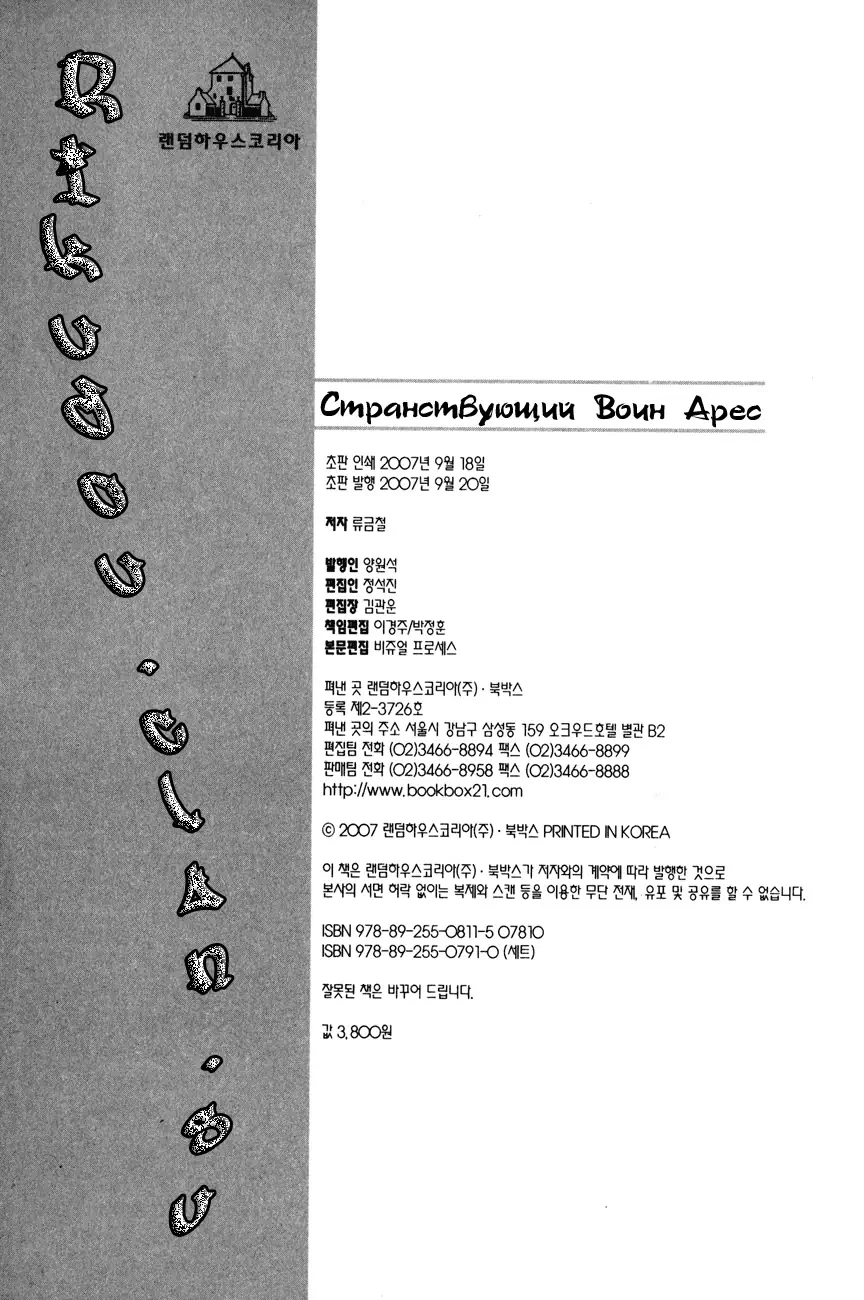 랜덤하우스코리아
Странствующий Воин Арес
초판 인쇄 2007년 9월 18일
초판 발행 2007년 9월 20일
저자 류금철
발행인 양원석
편집인 정석진
편집장 김관운
책임편집 이경주/박정훈
본문편집 비쥬얼 프로세스
펴낸 곳 랜덤하우스코리아(주) · 북박스
등록 제2-3726호
펴낸 곳의 주소 서울시 강남구 삼성동 159 오크우드호텔 별관 B2
편집팀 전화 (02)3466-8894 팩스 (02)3466-8899
판매팀 전화 (02)3466-8958 팩스 (02)3466-8888
http://www.bookbox21.com
© 2007 랜덤하우스코리아(주) · 북박스 PRINTED IN KOREA
이 책은 랜덤하우스코리아(주) · 북박스가 저자와의 계약에 따라 발행한 것으로
본사의 서면 허락 없이는 복제와 스캔 등을 이용한 무단 전재, 유포 및 공유를 할 수 없습니다.
ISBN 978-89-255-0811-5 07810
ISBN 978-89-255-0791-0 (세트)
잘못된 책은 바꾸어 드립니다.
값 3,800원